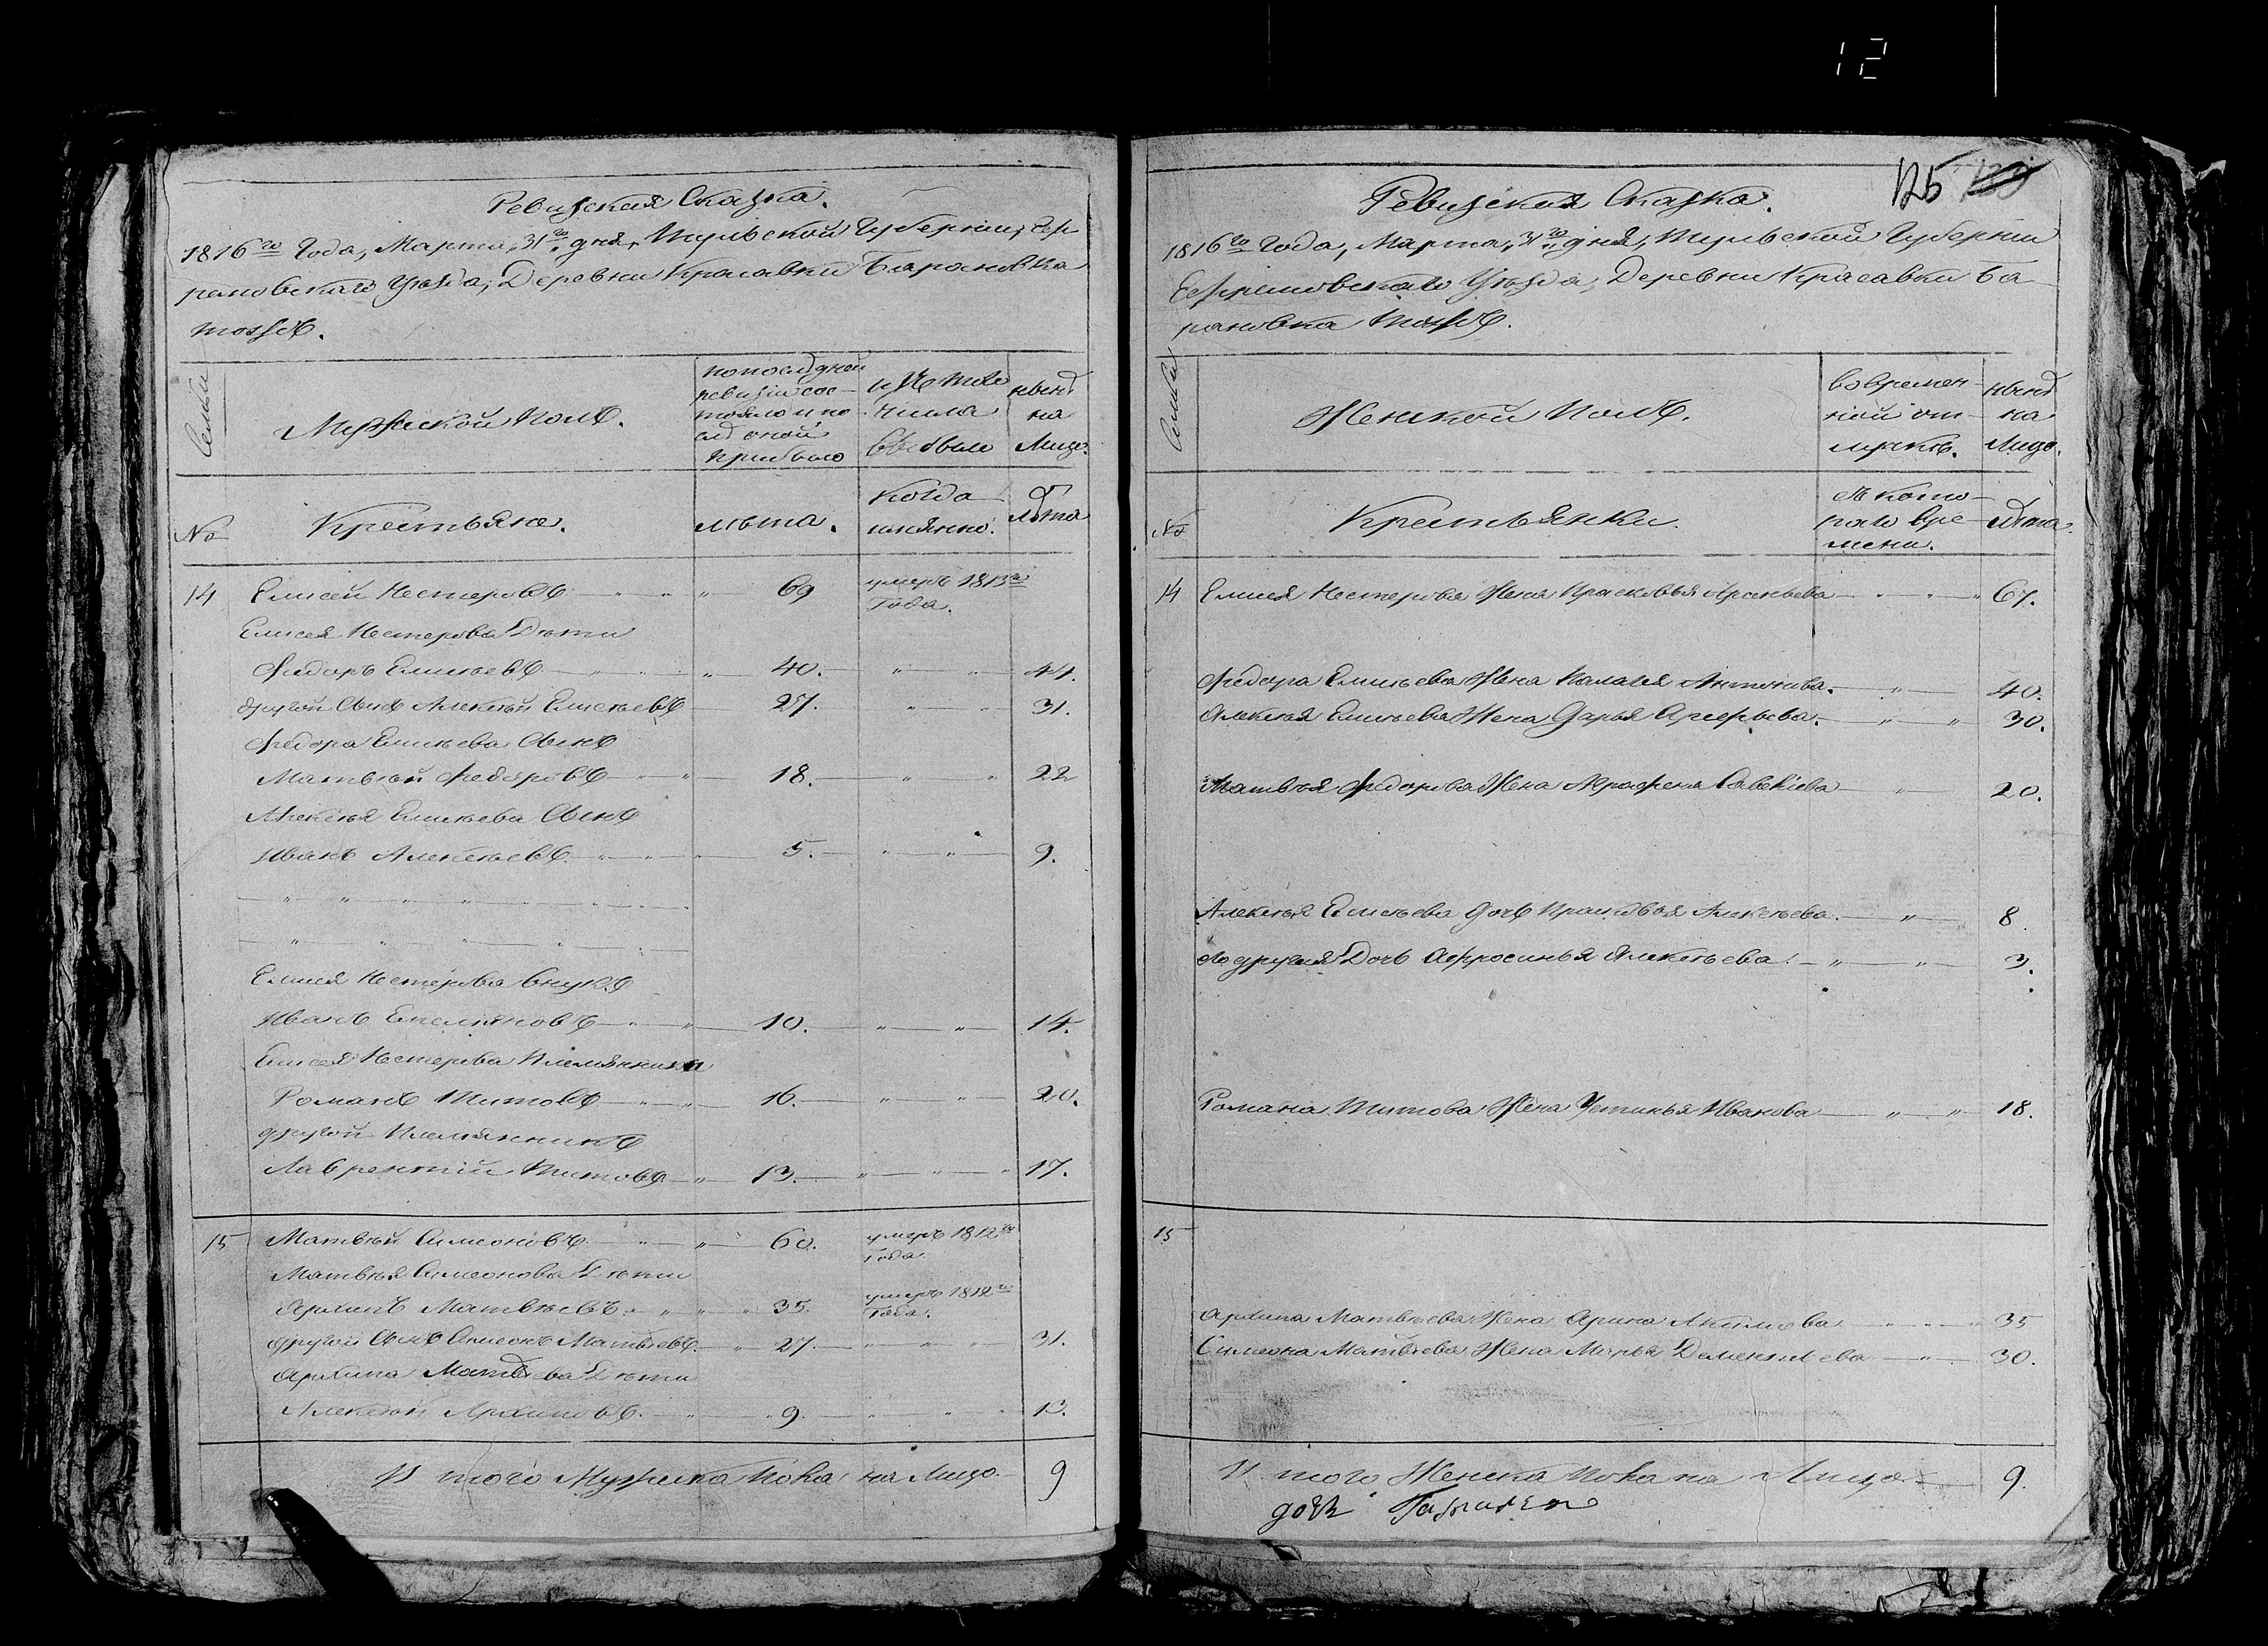 12
Ревизская Сказка.
1816го Года, Марта, 31го дня, Тульской Губернии, Еф
ремовскаго Уѣзда, Деревни Красавки Барановка
тожъ.
Семьи
Мужеской полъ.
по последней ревизіи состояло и послѣ оной прибыло
изъ того числа выбыло
нынѣ на лицо.
№
Крестьяне.
лѣта.
когда именно.
Лѣта
14 Елисей Нестеровъ 69 умеръ 1813го Года.
Елисея Нестерова Дѣти
Федоръ Елисеевъ 40. 44.
другой сынъ Алексѣй Елисѣевъ 27. 31.
Федора Елисѣева Сынъ
Матвѣй Федоровъ 18. 22
Алексѣя Елисѣева Сынъ
Иванъ Алексѣевъ 5. 9.
Елисея Нестерова внукъ
Иванъ Емельяновъ 10. 14.
Елисея Нестерова Племянники
Романъ Титовъ 16. 20.
другой Племянникъ
Лаврентій Титовъ 13. 17.
15 Матвѣй Симеоновъ 60. умеръ 1812го Года.
Матвѣя Симеонова Дѣти
Архипъ Матвѣевъ 35. умеръ 1812го Года.
другой Сынъ Симеонъ Матвѣевъ 27. 31.
Архипа Матвѣева Дѣти
Алексѣй Архиповъ. 9. 13.
И того Мужеска пола на Лицо 9
125
Ревизская Сказка.
1816го Года, Марта, 31го дня, Тульской Губерніи
Ефремовскаго Уѣзда, Деревни Красавки Ба
рановка тожъ.
Семьи
Женской полъ.
во временной отлучкѣ.
нынѣ на Лицо.
№
Крестьянки.
съ котораго времени.
лѣта.
14 Елисея Нестерова Жена Прасковья Арсеньева 67.
Федора Елисѣева Жена Палагея Антонова. 40.
Алексѣя Елисѣева Жена Дарья 30.
Матвѣя Федорова Жена Аграфена Савельева 20.
Алексѣя Елисѣева дочь Прасковья Алексѣева. 8.
другая Дочь Афросинья Алексѣева 3.
Романа Титова Жена Устинья Иванова 18.
15
Архипа Матвѣева Жена Арина Акимова 35
Симеона Матвѣева Жена Марья Дементьева 30.
И того Женска пола на Лицо 9.